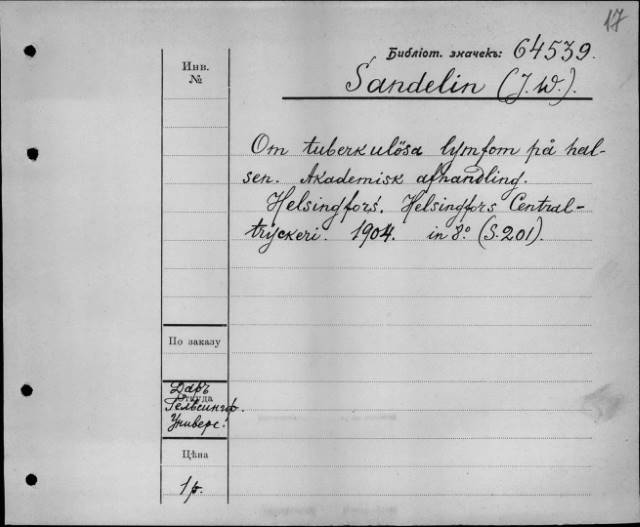 17
Библіот. значекъ: 64539.
Sandelin (J. W.).
Инв.
№
Om tuberkulösa lymfom på hal-
sen. Akademisk afhandling.
Helsingfors. Helsingfors Central-
tryckeri. 1904. in 8º (S. 201).
По заказу
Даръ
Откуда
Гельсингф.
Универс.
Цѣна
1 р.